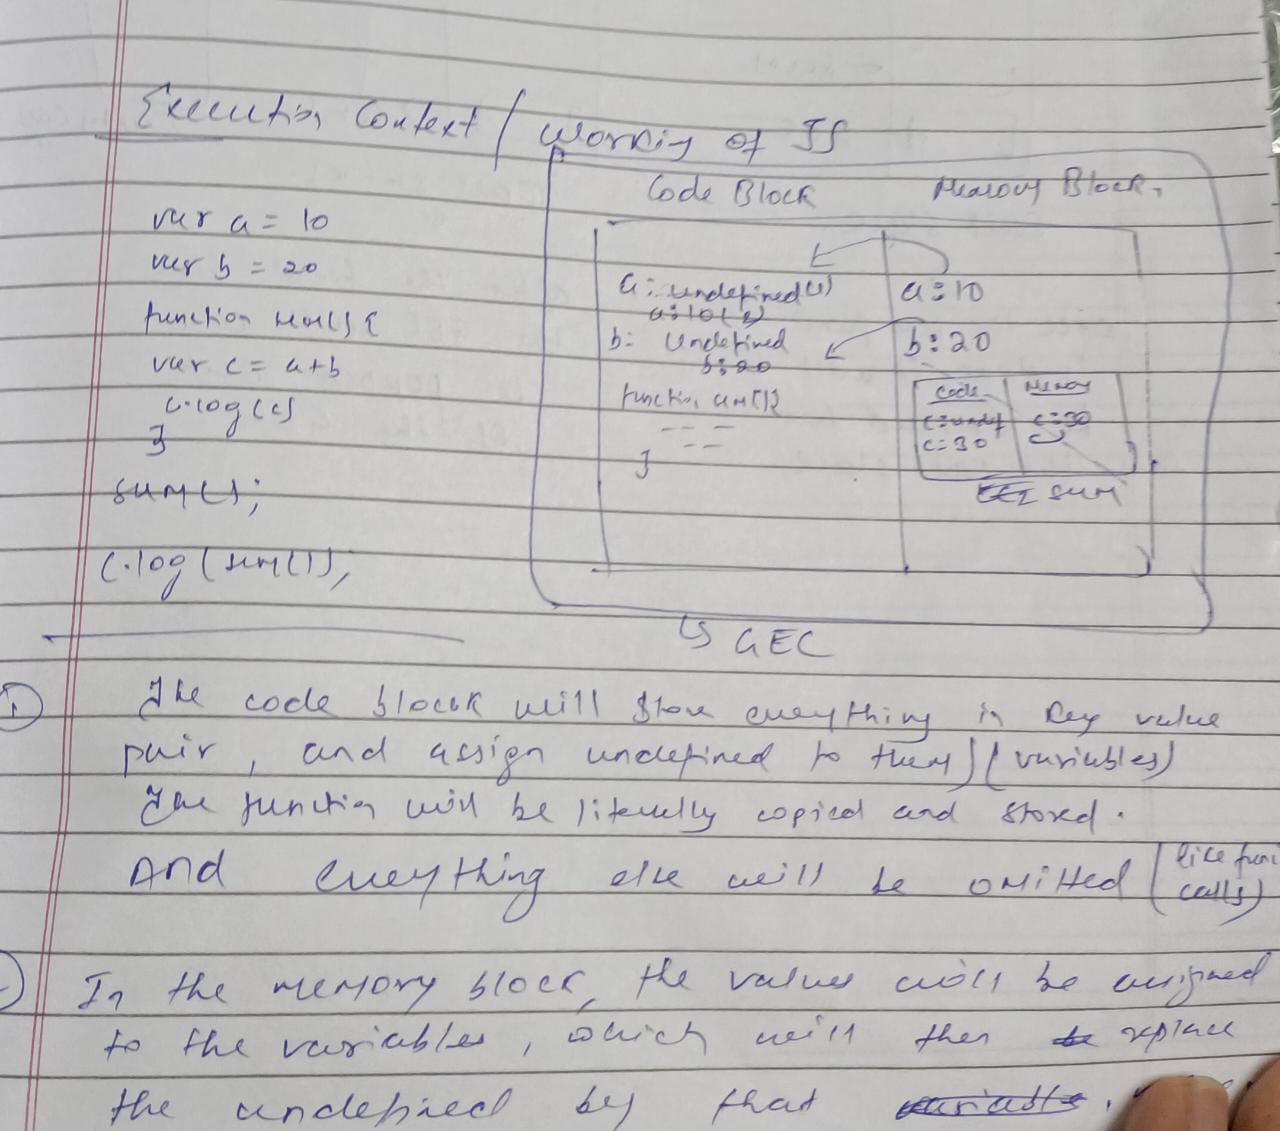 Execution Context / Working of JS
var a = 10
var b = 20
function sum() {
var c = a+b
c.log(c)
}
sum();
c.log(sum());
Code Block
Memory Block
a: undefined (1)
a: 10 (2)
b: undefined
b: 20
function sum(){
}
a: 10
b: 20
Code
Memory
c: undef
c: 30
c = 30
SUM
↳ GEC
① The code block will store everything in key value
pair, and assign undefined to them) (variables)
The function will be literally copied and stored.
And everything else will be omitted (like func
calls)
In the memory block, the values will be assigned
to the variables, which will then be replace
the undefined by that variable.